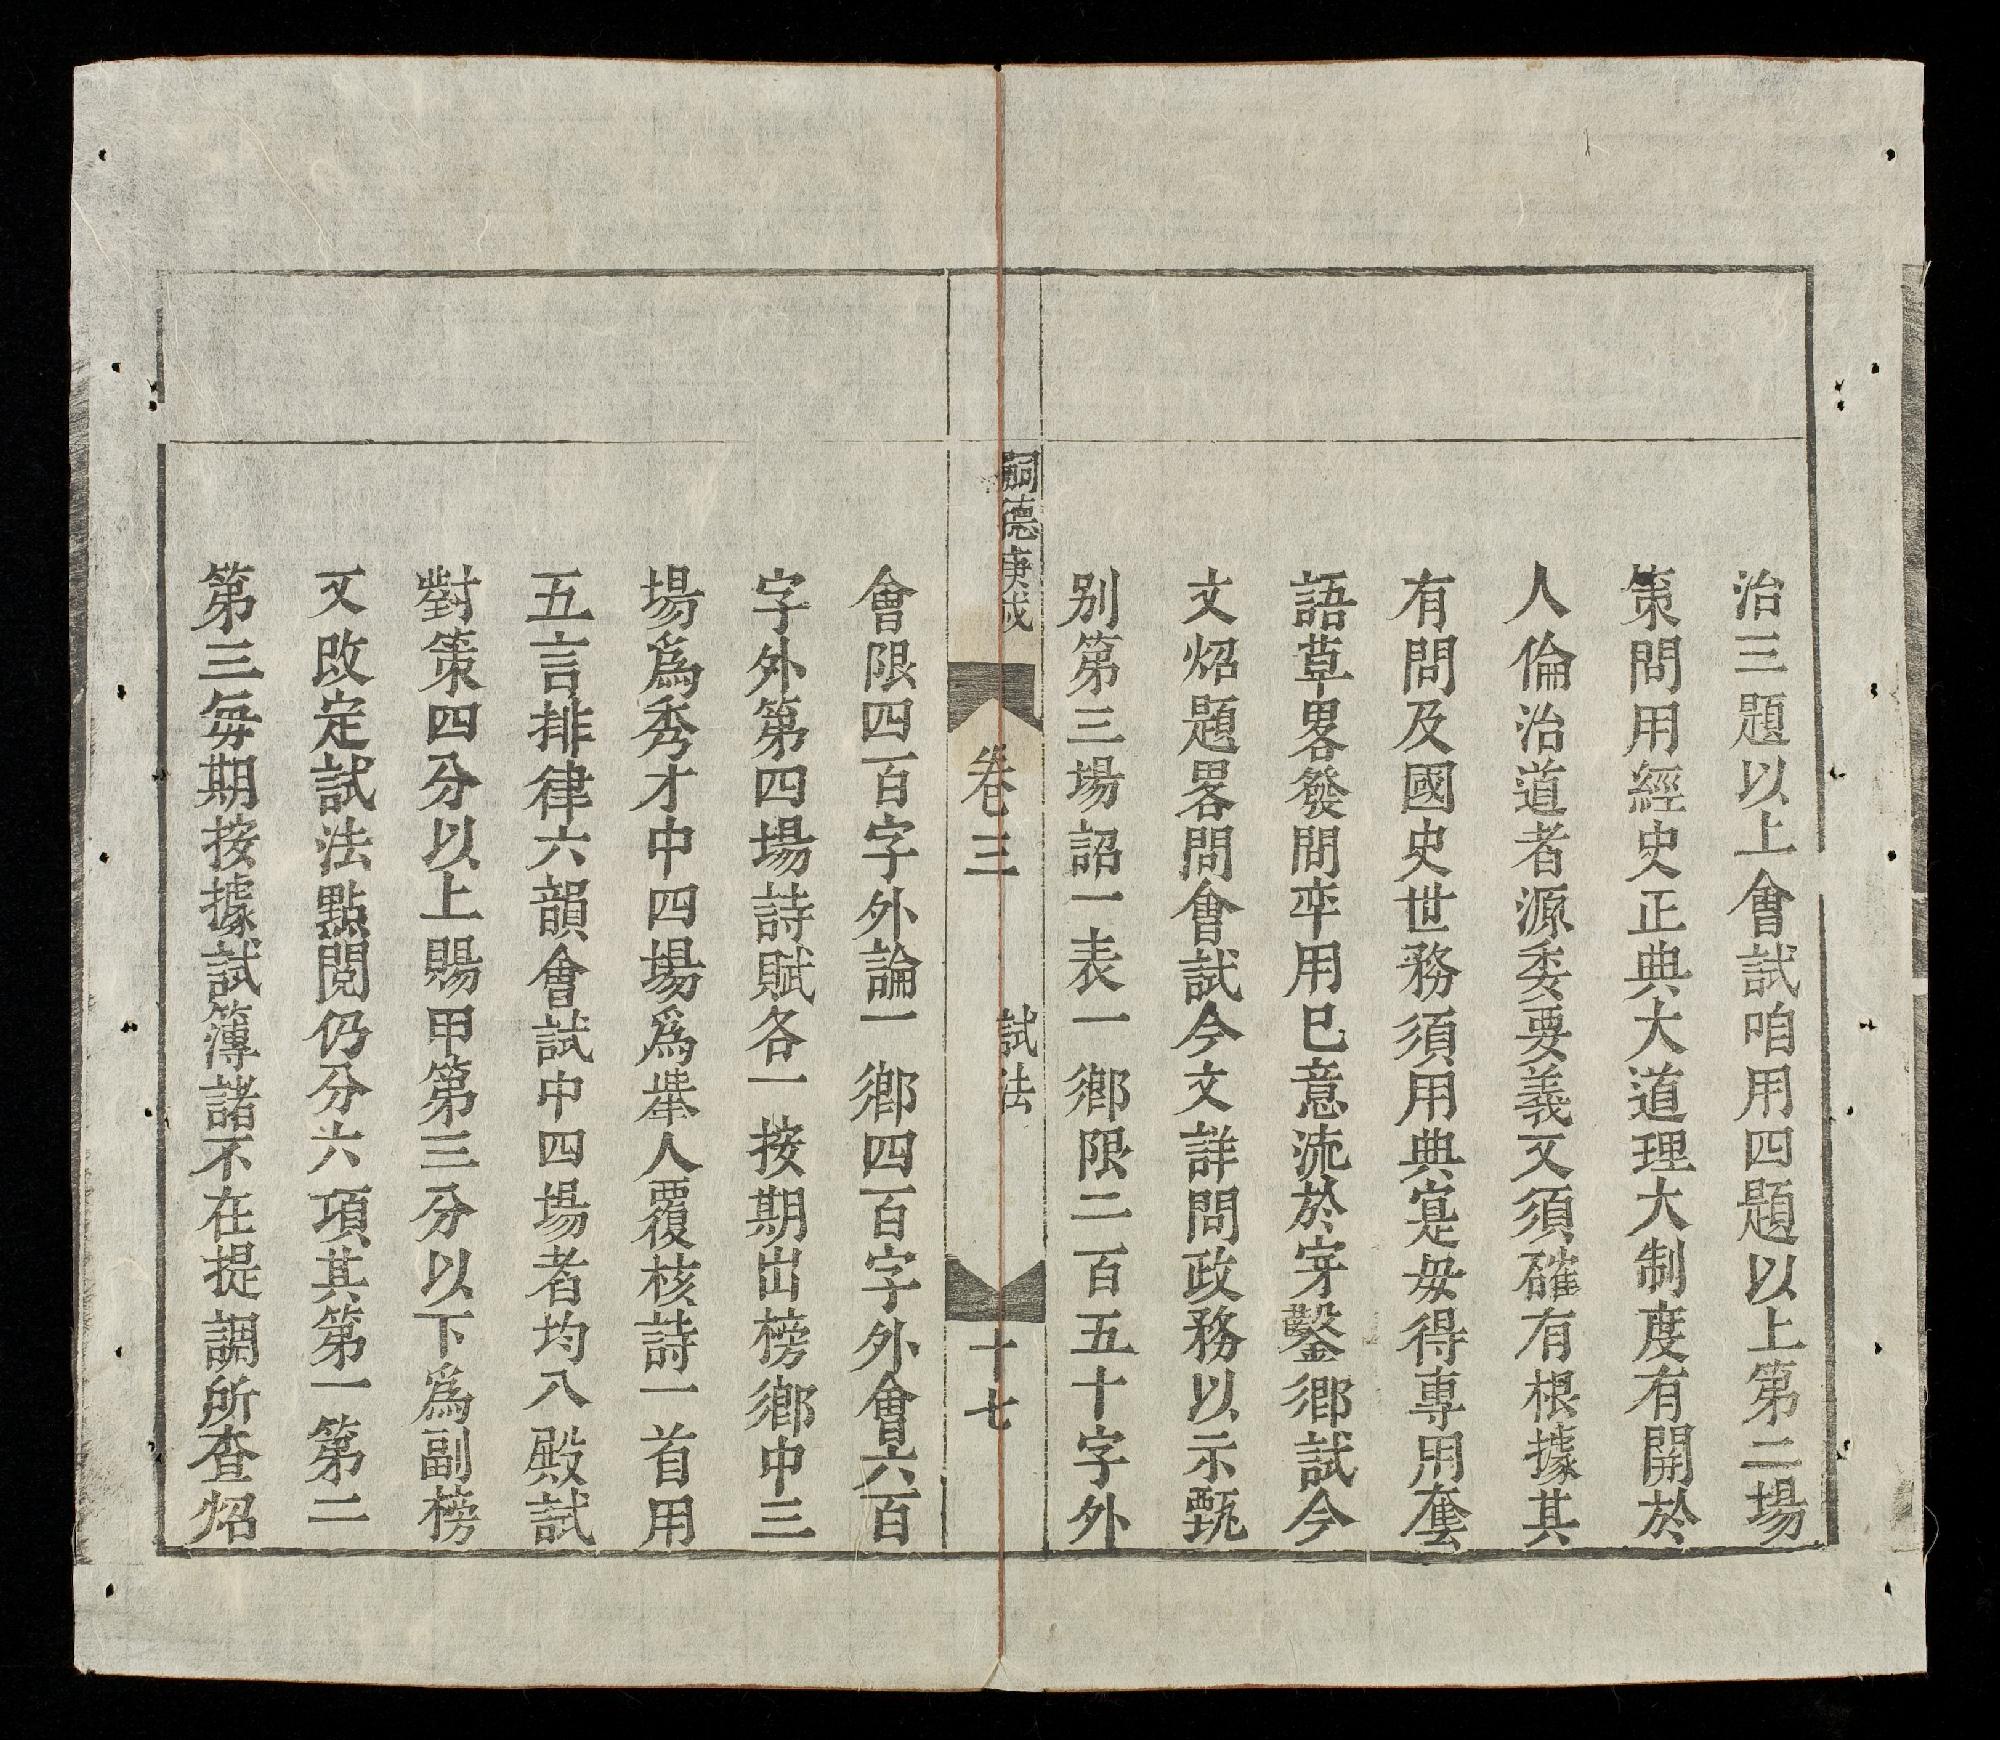 治三題以上會試咱用四題以上第二場
策問用經史正典大道理大制度有開於
人倫治道者源委要義又須確有根據其
有問及國史世務須用典寔毋得專用套
語草畧發問卒用己意流於穿鑿鄉試今
文炤題畧問會試今文詳問政務以示甄
別第三場詔一表一鄉限二百五十字外
嗣德庚戌
卷三 試法 十七
會限四百字外論一鄉四百字外會六百
字外第四場詩賦各一按期出榜鄉中三
場爲秀才中四場爲舉人覆核詩一首用
五言排律六韻會試中四場者均入殿試
對策四分以上賜甲第三分以下爲副榜
又改定試法點閱仍分六項其第一第二
第三每期按據試簿諸不在提調所查炤